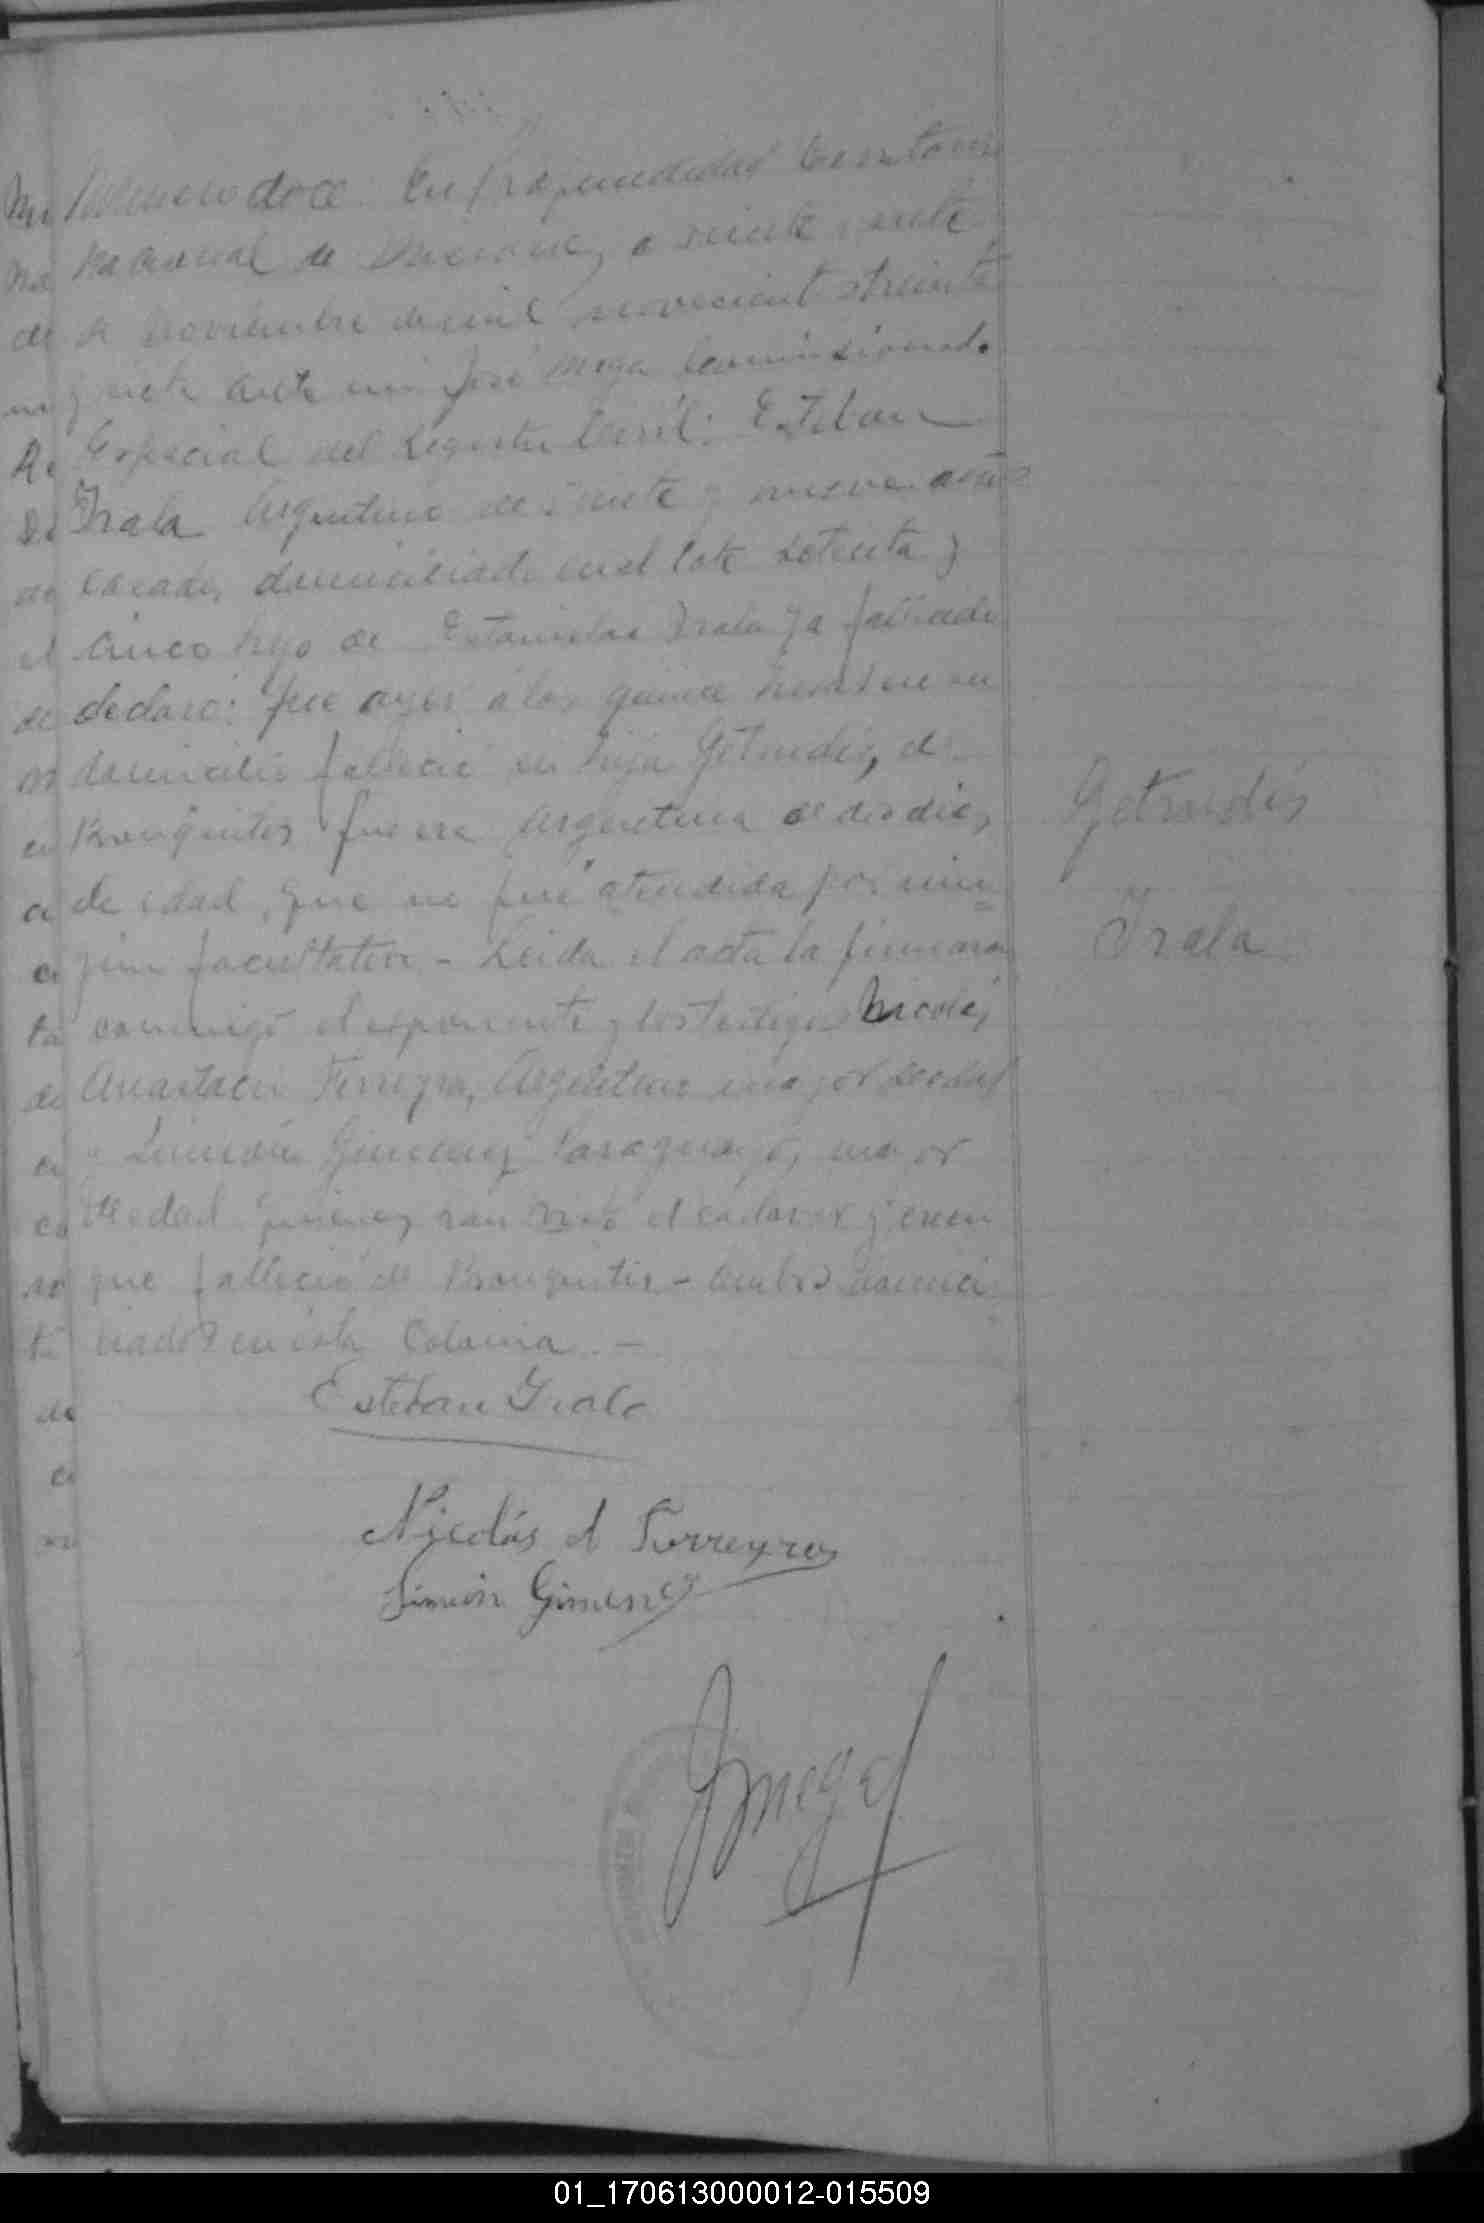 Número doce. En
Nacional de Misiones, a veinte y siete
de Noviembre de mil novecientos treinta
y siete ante mi José Mega Comisionado
Especial del Registro Civil: Esteban
Irala Argentino de veinte y nueve años
casado, domiciliado en el lote setenta y
cinco hijo de Estanislao Irala ya fallecido
declaró: Que ayer a las quince horas en su
domicilio falleció su hija Getrudis, de
Bronquitis que era Argentina de dos dias
de edad, que no fué atendida por nin=
gun facultativo - Leida el acta la firmaron
conmigo el exponente y los testigos Nicolás
Anastacio Ferreyra, Argentino mayor de edad
y Simeón Gimenez Paraguayo, mayor
de edad quienes han visto el cadaver y creen
que falleció de Bronquitis - ambos domici
liados en esta Colonia. -
Getrudis
Irala
Esteban Irala
Nicolás A Ferreyra
Simeón Gimenez
JMega
01_170613000012-015509